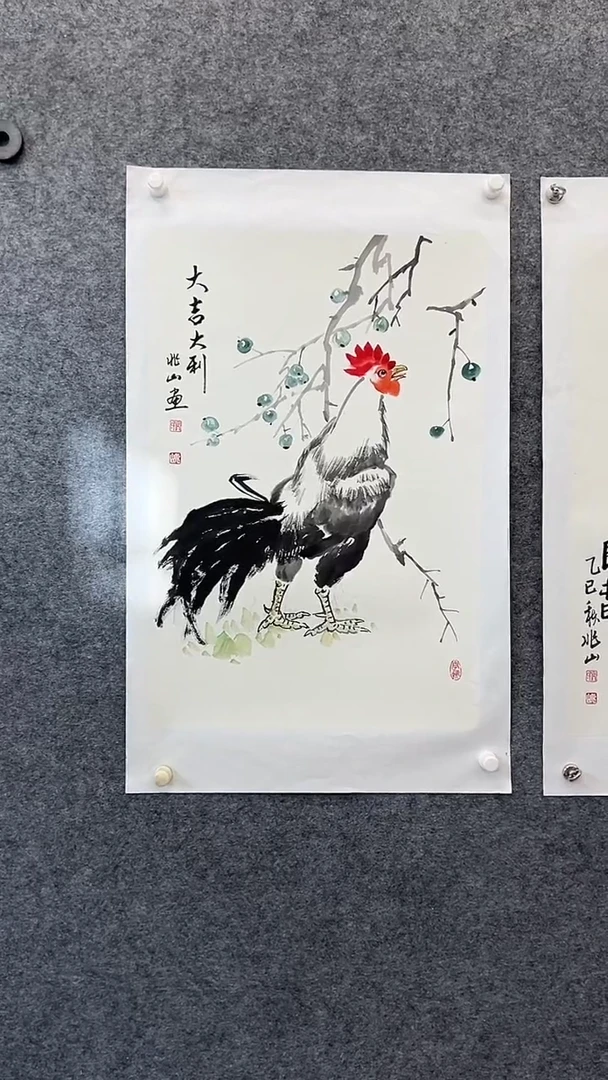 大吉大利
兆山画
乙巳秋兆山